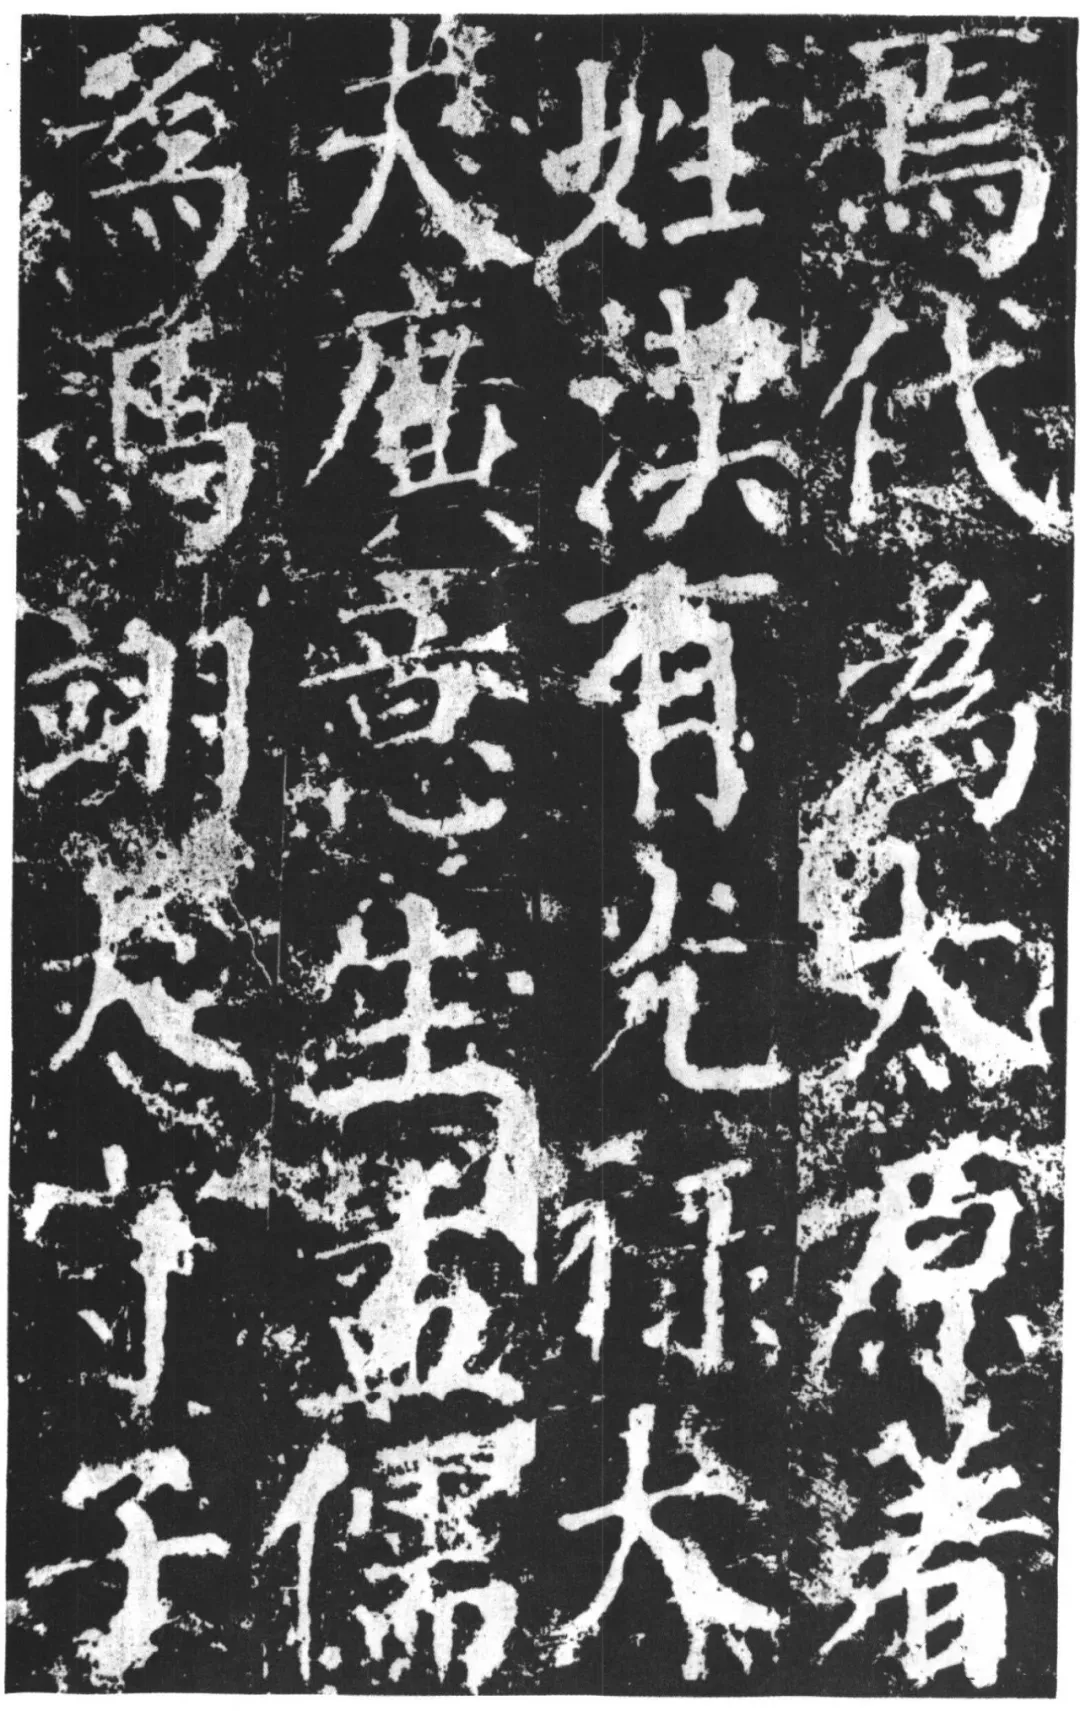 焉代為太原著
姓漢有光祿大
夫廣意生孟儒
為馮翊太守子